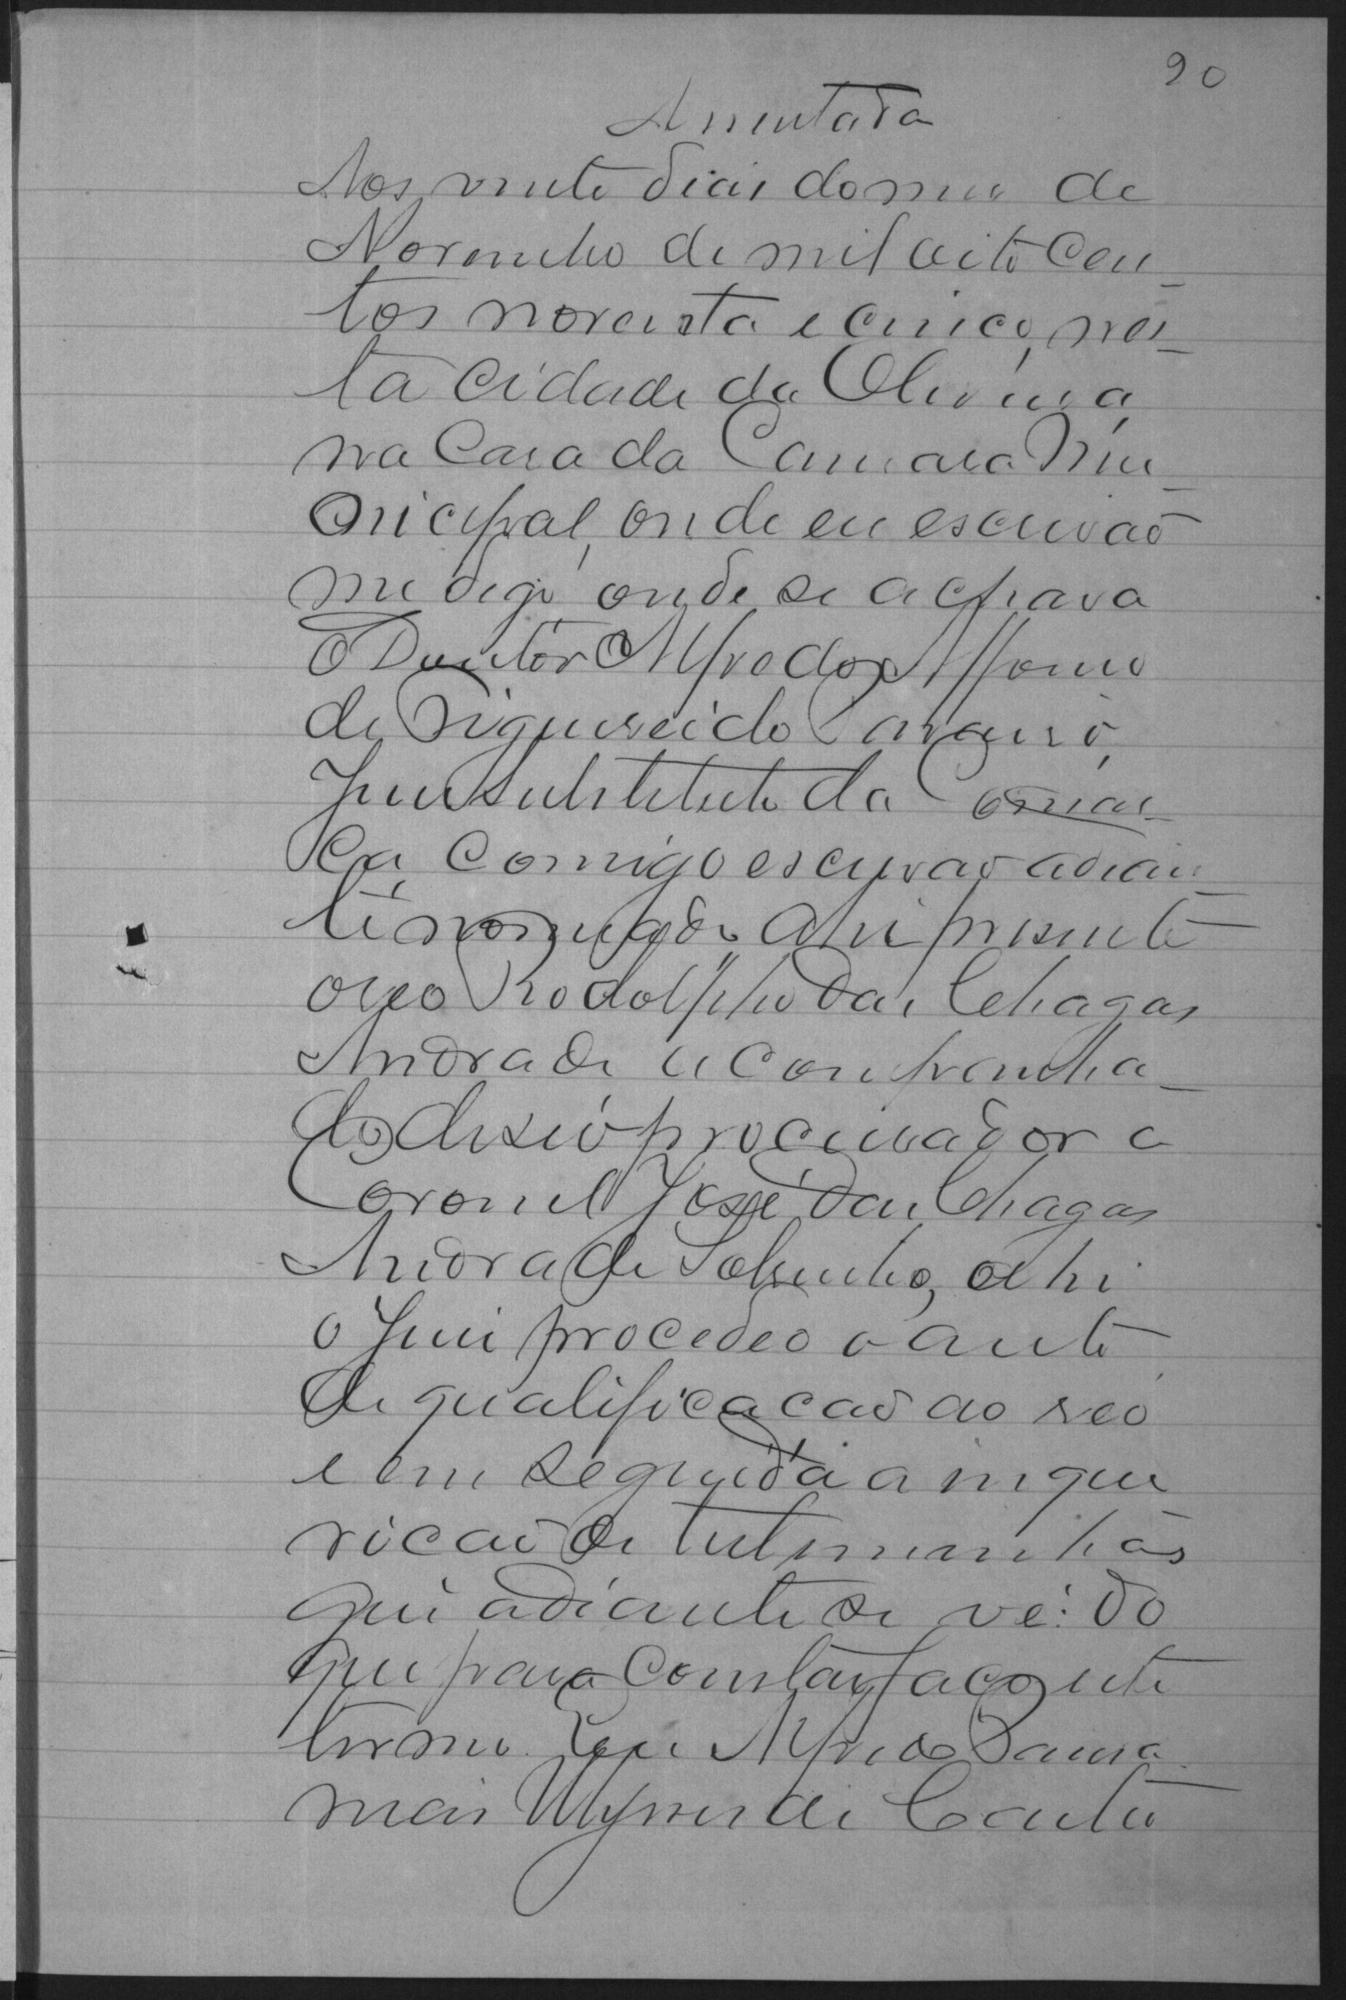 90
Assentada
Aos vinte dias do mes de
Novembro de mil oito cen-
tos noventa e cinco, nes-
ta cidade da Oliveira,
na Casa da Camara Mu-
nicipal, onde eu escrivão
me digo onde se achava
o Doutôr Alfredo Affonso
de Figueireido Paraiso,
Juis substituto da Comar-
ca, comigo escrivão adian-
te nomeado, ahi presente
o reo Rodolpho das Chagas
Andrade acompanha-
do de seo procurador o
Coronel José das Chagas
Andrade Sobrinho, ahi
o Juis procedeo o auto
de qualificacão ao reo
e em seguida a inque
ricão de testemunhas
que adiante se vê: do
que para constar faço este
termo. Eu Alfredo
mais de Couto